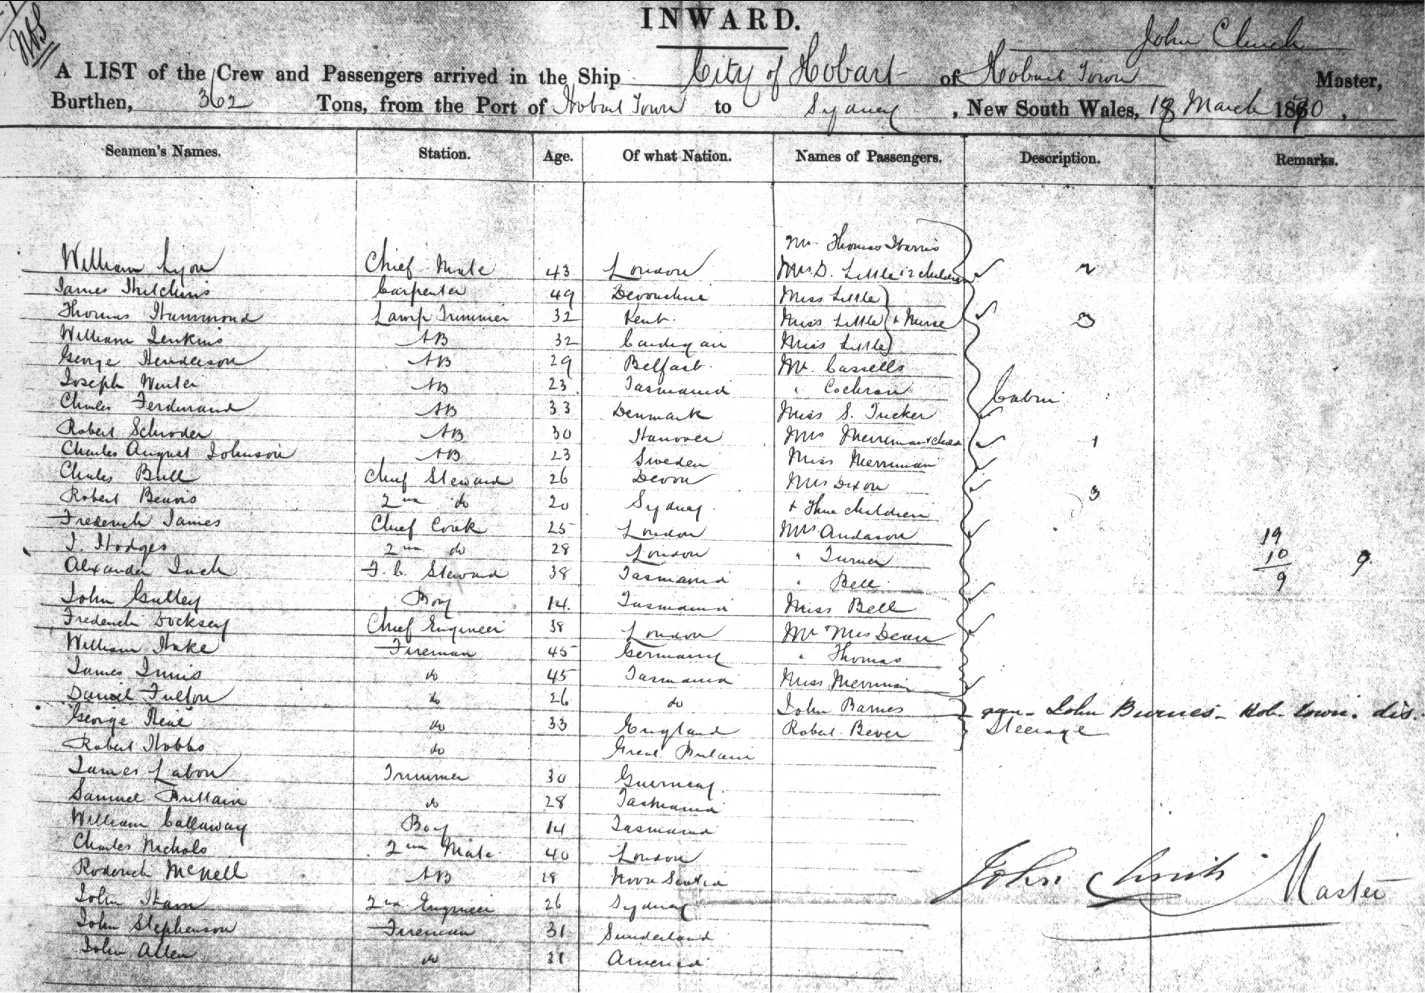 INWARD.
John Clinch
A LIST of the Crew and Passengers arrived in the Ship City of Hobart of Hobart Town Master,
Burthen, 362 Tons, from the Port of Hobart Town to Sydney, New South Wales, 18 March 1870,
Seamen's Names. Station. Age. Of what Nation. Names of Passengers. Description. Remarks.
Mr Thomas Harris
William Lyon Chief Mate 43 London Mrs D. Little & 2 children 2
James Hutchins Carpenter 49 Devonshire Miss Little
Thomas Hammond Lamp Trimmer 32 Kent Miss Little & Nurse 3
William Jenkins AB 32 Cardigan Miss Little
George Henderson AB 29 Belfast Mr Cassells
Joseph Winter AB 23 Tasmania " Cochran Cabin
Charles Ferdinand AB 33 Denmark Miss S. Tucker
Robert Schroder AB 30 Hanover Mrs Merriman & child 1
Charles August Johnson AB 23 Sweden Miss Merriman
Charles Bull Chief Steward 26 Devon Mrs Dixon 3
Robert Beavis 2nd do 20 Sydney & Three children
Frederick James Chief Cook 25 London Mrs Anderson 19
J. Hodges 2nd do 28 London " Turner 10 9
Alexander F.C. Steward 38 Tasmania " Bell 9
John Gulley Boy 14 Tasmania Miss Bell
Frederick Docksey Chief Engineer 38 London Mr Mrs Dean
William Hake Fireman 45 Germany " Thomas
James Innis do 45 Tasmania Miss Merriman
Daniel Fulton do 26 do John Barnes John Burnes - Hob. town. dis.
George do 33 England Robert Bever Steerage
Robert Hobbs do Great Britain
James Labon Trimmer 30 Guernsey
Samuel Brittain do 28 Tasmania
William Callaway Boy 14 Tasmania
Charles Nichols 2nd Mate 40 London
Roderick McNell AB 28 Nova Scotia
John Ham 2nd Engineer 26 Sydney
John Stephenson Fireman 31 Sunderland
John Allen do America
John Clinch Master